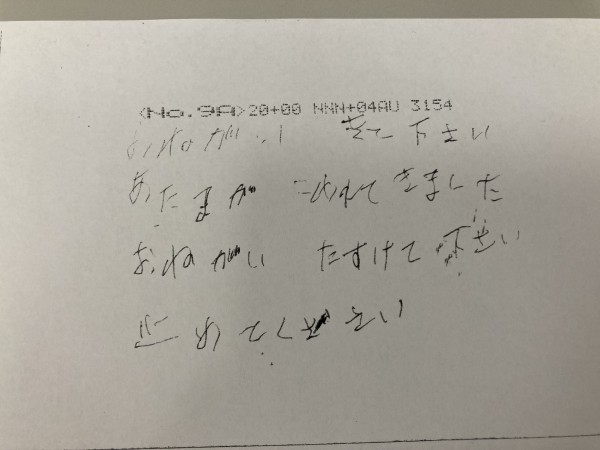 <No.9A>20+00 NNN+04AU 3154
おねがい きて下さい
あたまが こわれてきました
おねがい たすけて下さい
止めてください